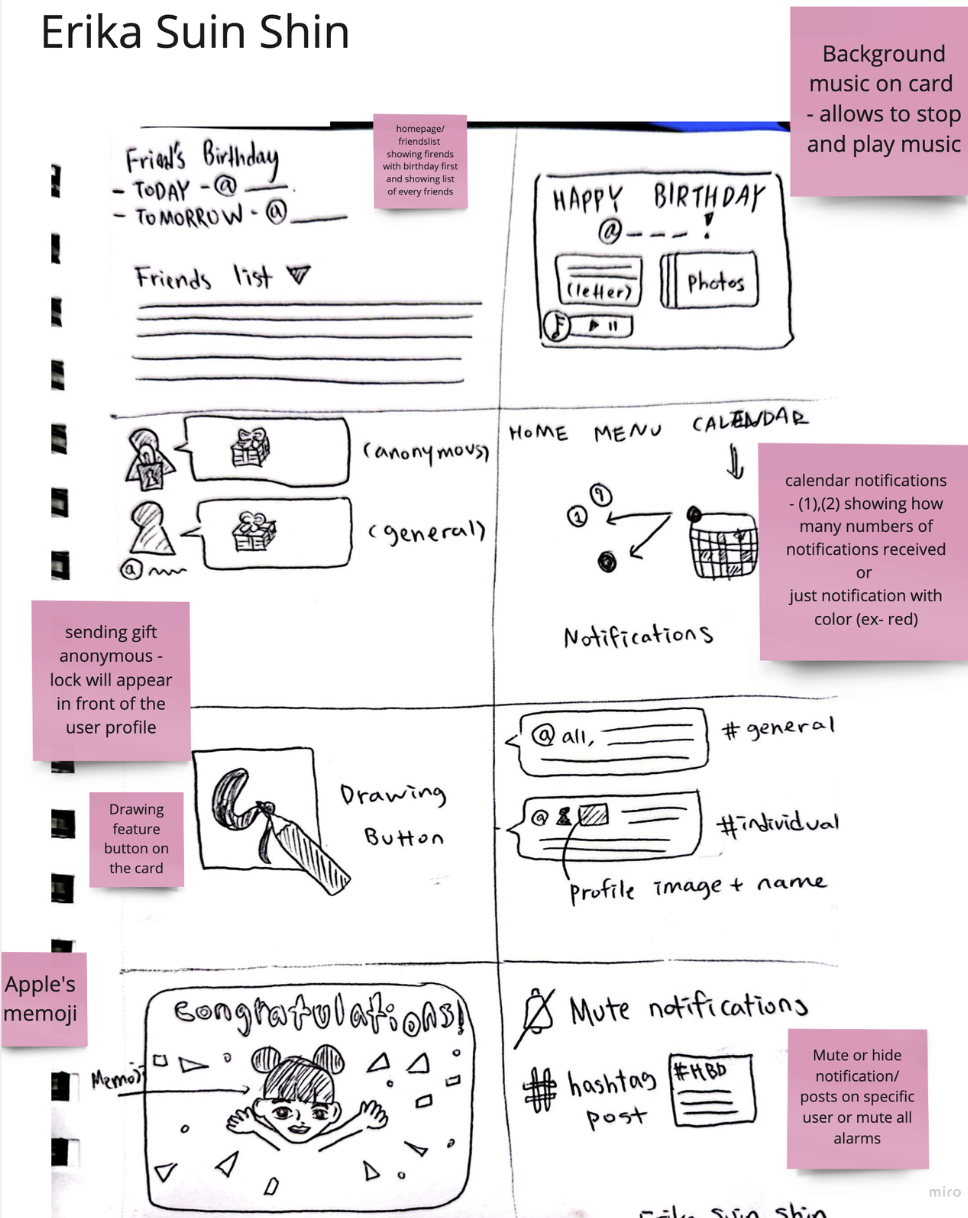 Erika Suin Shin
Background
music on card
- allows to stop
and play music
homepage/
friendslist
showing firends
with birthday first
and showing list
of every friends
Friend's Birthday
- TODAY - @ ____.
- TOMORROW - @ ____
Friends list
HAPPY BIRTHDAY
@ _ _ _ !
(letter)
Photos
(anonymous)
(general)
@
HOME MENU CALENDAR
1
9
Notifications
calendar notifications
- (1),(2) showing how
many numbers of
notifications received
or
just notification with
color (ex- red)
sending gift
anonymous -
lock will appear
in front of the
user profile
Drawing
Button
Drawing
feature
button on
the card
@ all,
# general
@
#individual
Profile image + name
Apple's
memoji
Congratulations!
Memoji
Mute notifications
# hashtag
post
#HBD
Mute or hide
notification/
posts on specific
user or mute all
alarms
miro
Erika Suin Shin